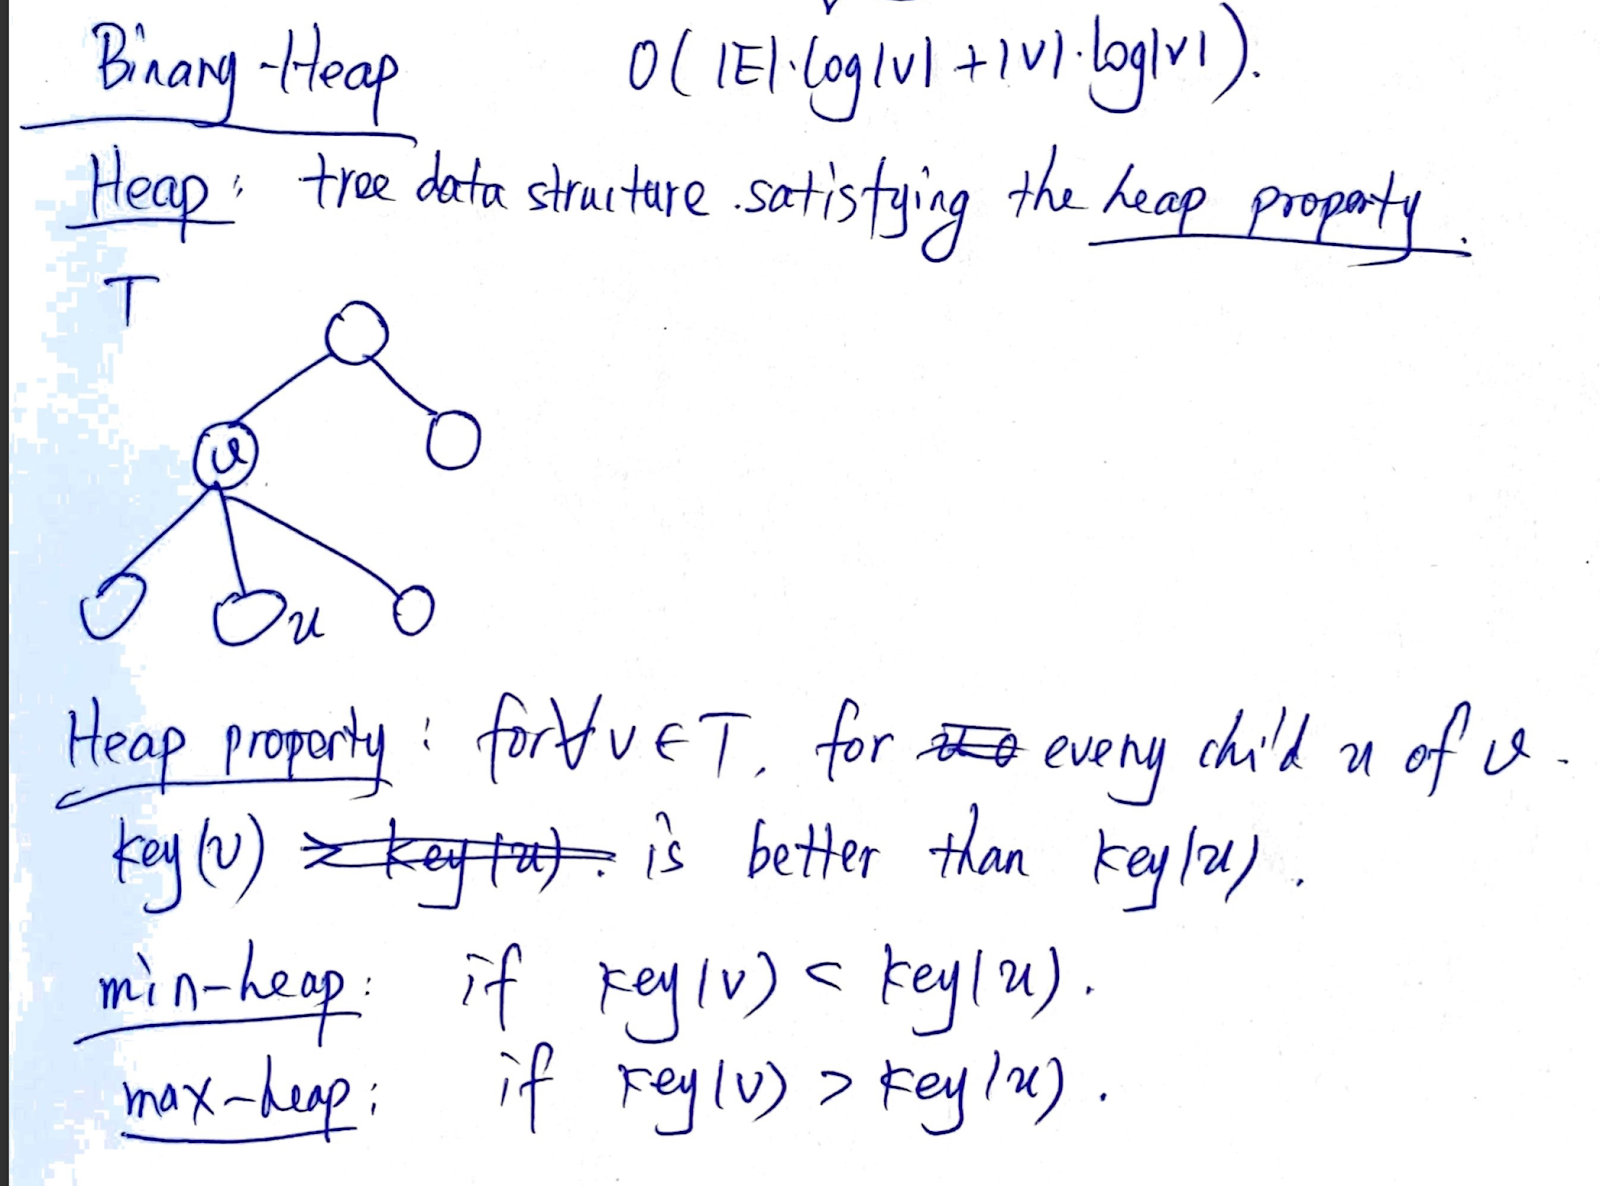 Binary-Heap O(|E|·log|V| + |V|·log|V|).
Heap: tree data structure satisfying the heap property.
T
v
u
Heap property: for ∀ v ∈ T, for every child u of v.
key(v) is better than key(u).
min-heap: if key(v) < key(u).
max-heap: if key(v) > key(u).